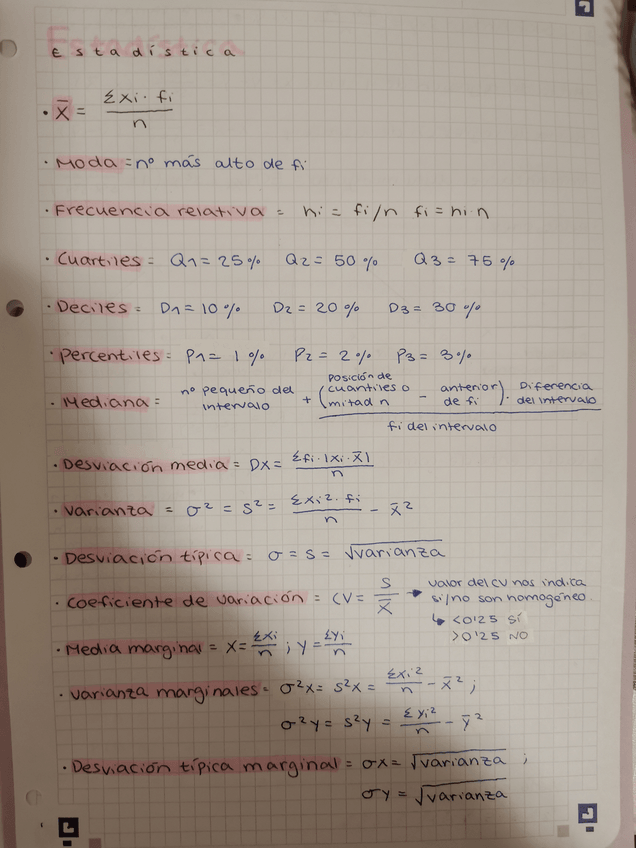 Estadística
· X̄ = Σxi · fi / n
· Moda = nº más alto de fi
· Frecuencia relativa = hi = fi/n fi = hi·n
· Cuartiles = Q1 = 25% Q2 = 50% Q3 = 75%
· Deciles = D1 = 10% D2 = 20% D3 = 30%
· Percentiles = P1 = 1% P2 = 2% P3 = 3%
· Mediana = nº pequeño del intervalo + (posición de cuantiles o mitad n − anterior de fi) · Diferencia del intervalo / fi del intervalo
· Desviación media = Dx = Σfi·|xi·X̄| / n
· Varianza = σ² = S² = Σxi²·fi / n − x̄²
· Desviación típica = σ = S = √varianza
· Coeficiente de variación = CV = S / X̄ → valor del CV nos indica
si/no son homogéneo.
↳ <0'25 SÍ
>0'25 NO
· Media marginal = X = Σxi / n ; Y = Σyi / n
· Varianza marginales = σ²x = S²x = Σxi² / n − x̄² ;
σ²y = S²y = Σyi² / n − ȳ²
· Desviación típica marginal = σx = √varianza ;
σy = √varianza